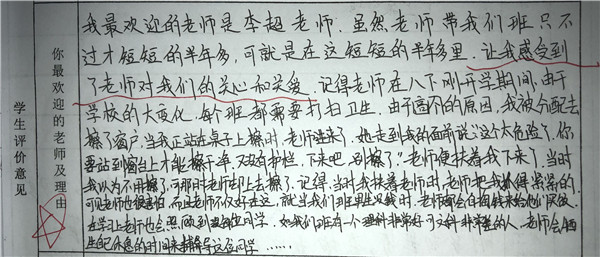 学生评价意见
你最欢迎的老师及理由
我最欢迎的老师是李超老师.虽然老师带我们班只不
过才短短的半年多,可就是在这短短的半年多里,让我感受到
了老师对我们的关心和关爱.记得老师在八下刚开学期间,由于
学校的大变化,每个班都需要打扫卫生.由于高个的原因,我被分配去
擦了窗户,当我正站在桌子上擦时,老师进来了.她走到我的面前说:"这个太危险了,你
要站到窗台上才能擦干净,又没有护栏,下来吧,别擦了."老师便扶着我下来了,当时
我以为不用擦了,可那时老师却上去擦了.记得,当时我扶着老师时,老师把我抓得紧紧的.
可见老师也很害怕,不止老师不仅好在这,就当我们班里生病时,老师都会自掏钱来给他们买饭.
在学习上老师也会照顾到
同学.如我们班有一个理科非常好可文科非常差的人,老师会
休息的时间来辅导这名同学......